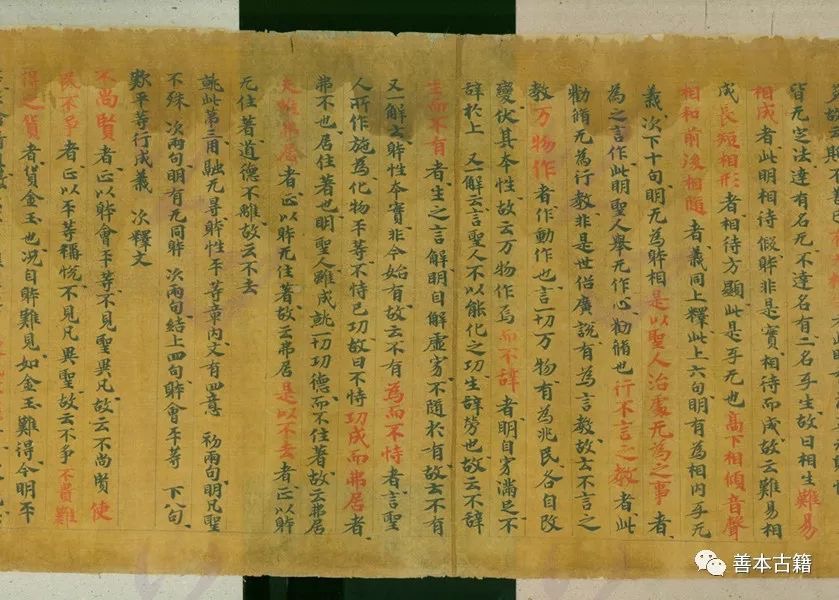 皆无定法達有名无不達名有二名乎生故曰相生難易
相成者此明相待假躰非是實相待而成故云難易相
成長短相形者相待方顯此是乎无也高下相傾音聲
相和前後相隨者義同上釋此上六句明有為相内乎无
義次下十句明无為躰相是以聖人治處无為之事者
為之言作此明聖人舉无作心勸脩也行不言之教者此
勸脩无為行教非是世俗廣說有為言教故云不言之
教万物作者作動作也言一切万物有為兆民各自改
變伏其本性故云万物作焉而不辝者明自穷滿足不
辝於上 又一解云言聖人不以能化之功生辝勞也故云不辝
生而不有者生之言解明自解虛穷不隨於有故云不有
又一解云躰性本實非今始有故云不有為而不恃者言聖
人所作施為化物平等不恃己功故曰不恃功成而弗居者
弗不也居住著也明聖人雖成就一切功德而不住著故云弗居
夫唯弗居者正以躰无住著故云弗居是以不去者正以躰
无住著道德不離故云不去
就此第三用融无㝵躰性平等章内文有四意 初兩句明凡聖
不殊 次兩句明有无同躰 次兩句結上四句躰會平等 下八句
歎平等行成義 次釋文
不尚賢者正以躰會平等不見聖異凡故云不尚賢使
民不爭者正以平等稱悅不見凡異聖故云不爭不貴難
得之貨者貨金玉也況自躰難見如金玉難得今明平
善本古籍